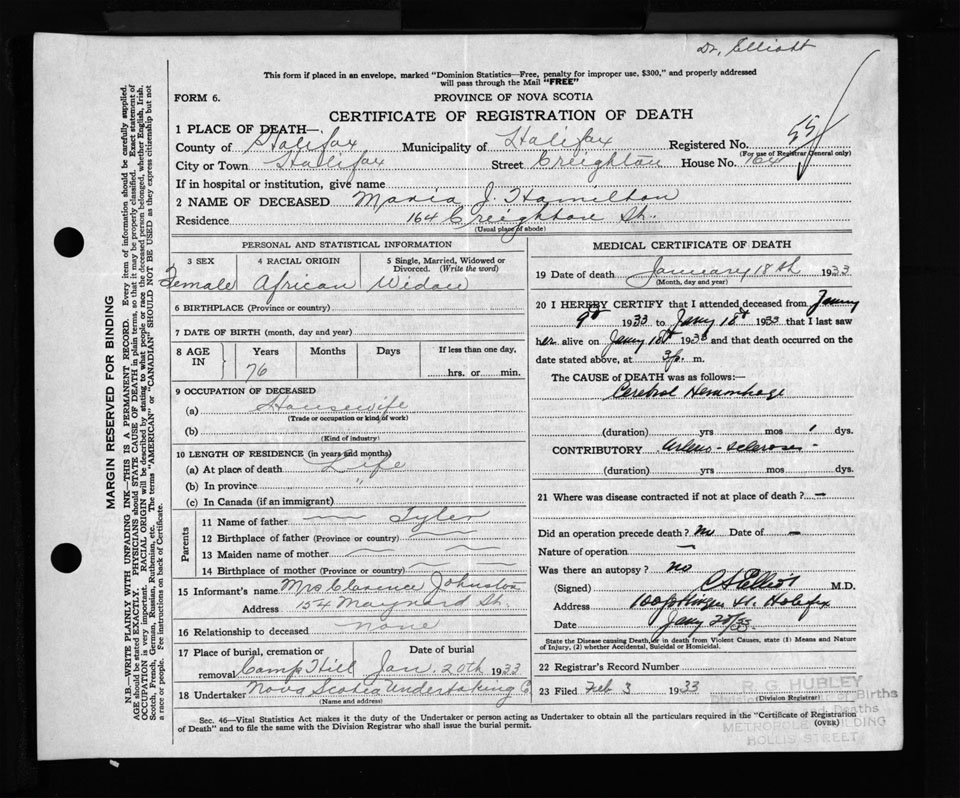 Dr. Elliott
This form if placed in an envelope, marked "Dominion Statistics—Free, penalty for improper use, $300," and properly addressed
will pass through the Mail "FREE"
FORM 6.
PROVINCE OF NOVA SCOTIA
CERTIFICATE OF REGISTRATION OF DEATH
1 PLACE OF DEATH—
County of Halifax Municipality of Halifax Registered No. 55
(For use of Registrar General only)
City or Town Halifax Street Creighton House No. 164
If in hospital or institution, give name
2 NAME OF DECEASED Maria J. Hamilton
Residence 164 Creighton St.
(Usual place of abode)
PERSONAL AND STATISTICAL INFORMATION
3 SEX 4 RACIAL ORIGIN 5 Single, Married, Widowed or Divorced. (Write the word)
Female African Widow
6 BIRTHPLACE (Province or country)
7 DATE OF BIRTH (month, day and year)
8 AGE IN Years Months Days If less than one day,
76 hrs. or min.
9 OCCUPATION OF DECEASED
(a) Housewife
(Trade or occupation or kind of work)
(b)
(Kind of industry)
10 LENGTH OF RESIDENCE (in years and months)
(a) At place of death Life
(b) In province " "
(c) In Canada (if an immigrant)
Parents
11 Name of father — Tyler
12 Birthplace of father (Province or country)
13 Maiden name of mother
14 Birthplace of mother (Province or country)
15 Informant's name Mrs Clarence Johnston
Address 154 Maynard St.
16 Relationship to deceased none
17 Place of burial, cremation or removal Camp Hill Date of burial Jan. 20th 1933
18 Undertaker Nova Scotia Undertaking C
(Name and address)
MEDICAL CERTIFICATE OF DEATH
19 Date of death January 18th 1933
(Month, day and year)
20 I HEREBY CERTIFY that I attended deceased from Janny
9th 1933 to Janny 18th 1933 that I last saw
her alive on Janny 18th 1933 and that death occurred on the
date stated above, at 3 p. m.
The CAUSE of DEATH was as follows:—
Cerebral Hemorrhage
(duration) yrs mos 1 dys.
CONTRIBUTORY Arterio-sclerosis -
(duration) yrs. mos. dys.
21 Where was disease contracted if not at place of death? —
Did an operation precede death? No Date of —
Nature of operation —
Was there an autopsy? no
(Signed) C S Elliot M.D.
Address Halifax
Date Janny 20/33
State the Disease causing Death, or in death from Violent Causes, state (1) Means and Nature
of Injury, (2) whether Accidental, Suicidal or Homicidal.
22 Registrar's Record Number
23 Filed Feb 3 1933 R G HURLEY
(Division Registrar)
of Births
Deaths
METROPOLE BUILDING
HOLLIS STREET
Sec. 46—Vital Statistics Act makes it the duty of the Undertaker or person acting as Undertaker to obtain all the particulars required in the "Certificate of Registration
of Death" and to file the same with the Division Registrar who shall issue the burial permit.
(OVER)
MARGIN RESERVED FOR BINDING
N.B.—WRITE PLAINLY WITH UNFADING INK—THIS IS A PERMANENT RECORD. Every item of information should be carefully supplied.
AGE should be stated EXACTLY. PHYSICIANS should STATE CAUSE OF DEATH in plain terms, so that it may be properly classified. Exact statement of
OCCUPATION is very important. RACIAL ORIGIN will be described by stating to what people or race the deceased person belonged, whether English, Irish,
Scotch, French, German, Russian, Ruthenian, etc. The terms "AMERICAN" or "CANADIAN" SHOULD NOT BE USED as they express citizenship but not
a race or people. Fee instructions on back of Certificate.